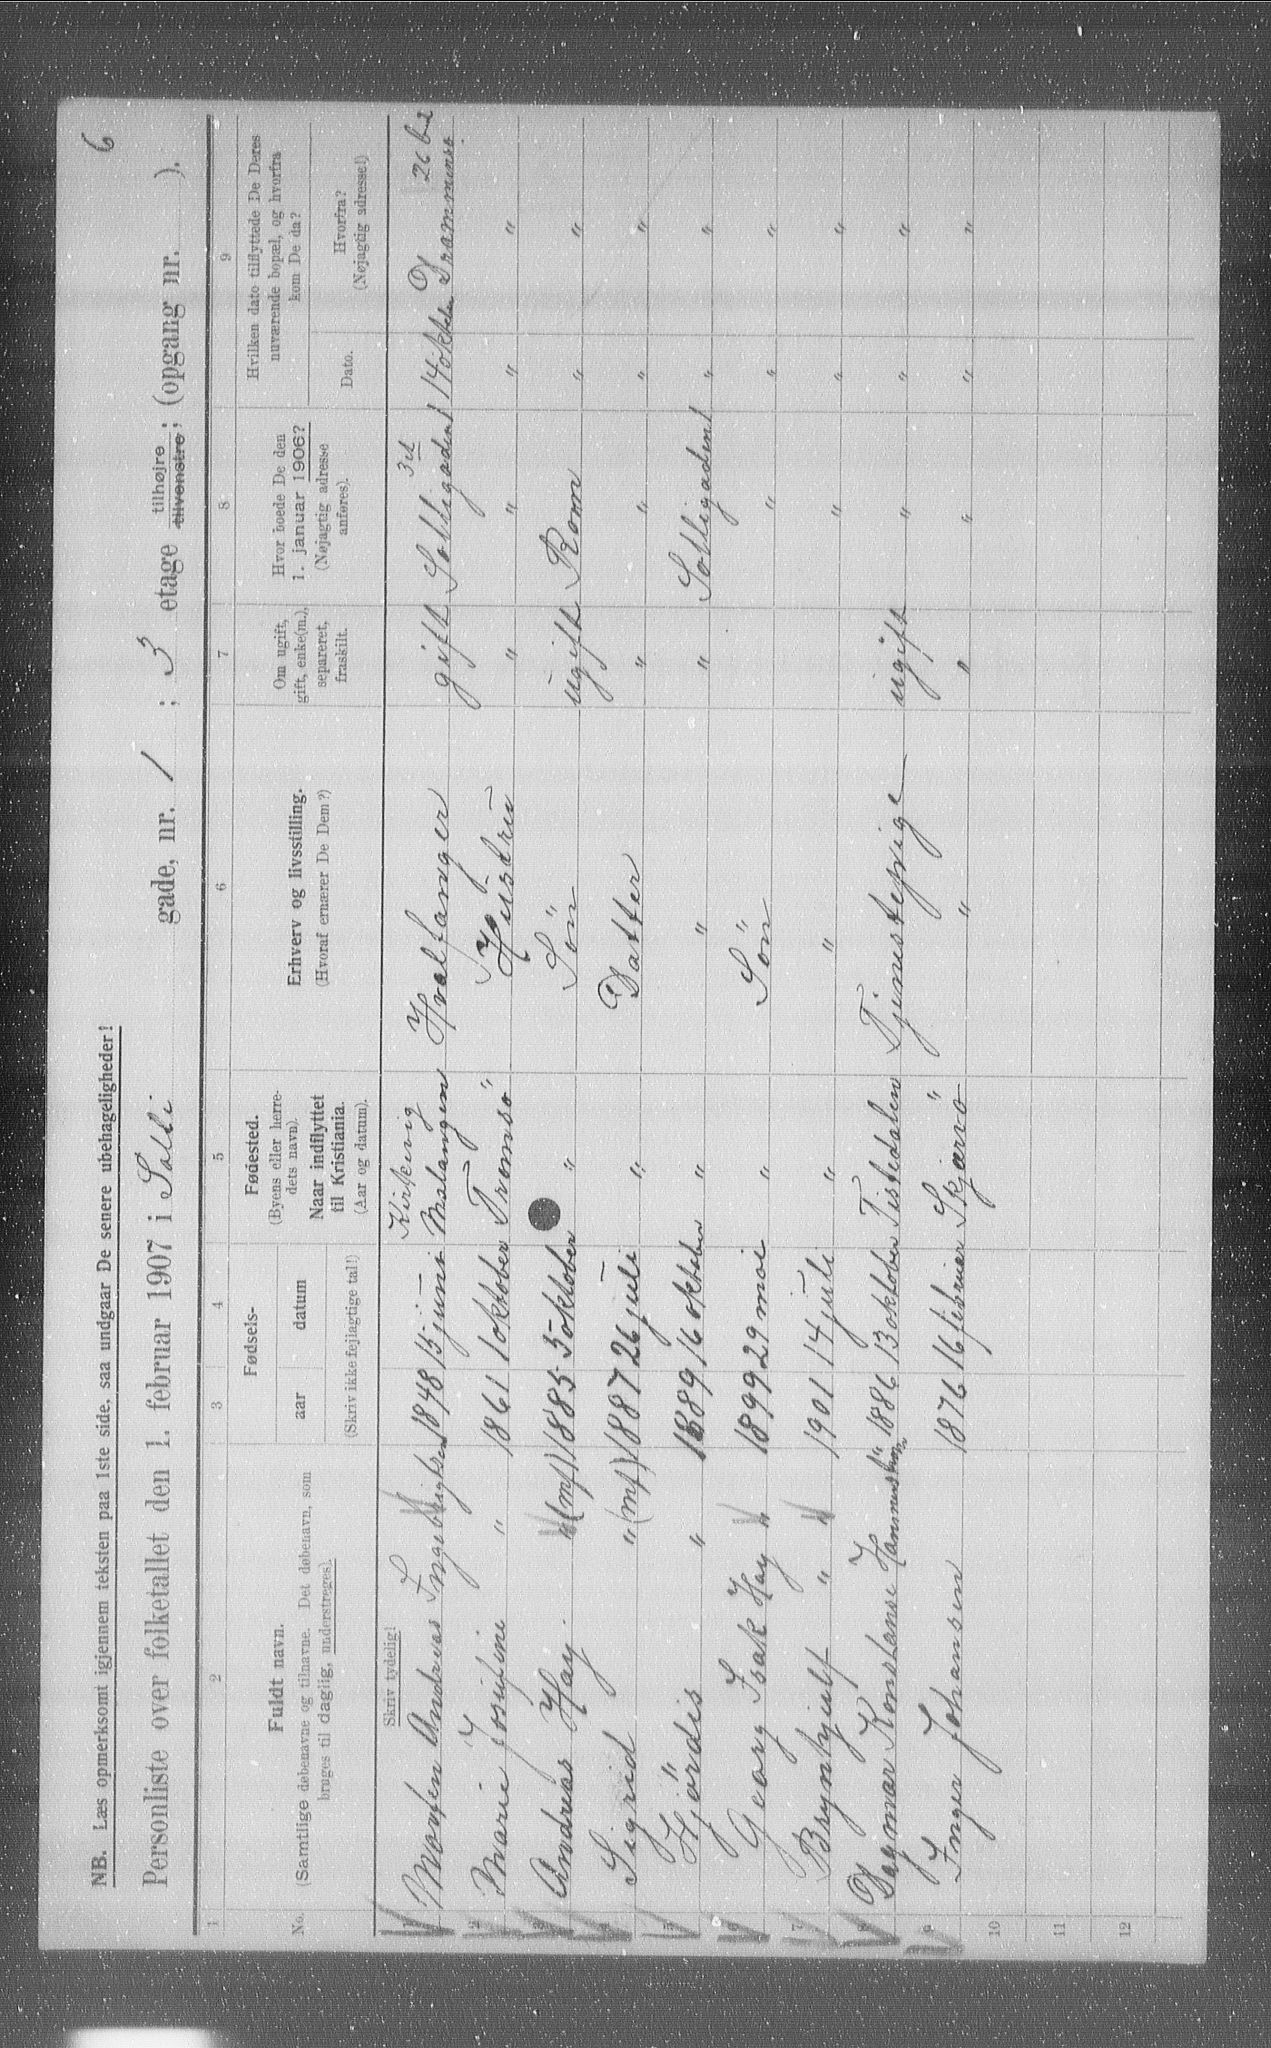 6
NB. Læs opmerksomt igjennem teksten paa 1ste side, saa undgaar De senere ubehageligheder!
Personliste over folketallet den 1. februar 1907 i Solli gade, nr. 1; 3 etage tilhøjre tilvenstre; (opgang nr. ).
1 2 3 4 5 6 7 8 9
No. Fuldt navn. (Samtlige døbenavne og tilnavne. Det døbenavn, som bruges til daglig, understreges). Fødsels- aar datum (Skriv ikke fejlagtige tal!) Fødested. (Byens eller herredets navn). Naar indflyttet til Kristiania. (Aar og datum). Erhverv og livsstilling. (Hvoraf ernærer De Dem?) Om ugift, gift, enke(m.), separeret, fraskilt. Hvor boede De den 1. januar 1906? (Nøjagtig adresse anføres). Hvilken dato tilflyttede De Deres nuværende bopæl, og hvorfra kom De da? Dato. Hvorfra? (Nøjagtig adresse!)
Skriv tydelig!
1 Morten Andreas Ingebrigtsen 1848 15 juni Malangen Hvalfanger gift Solligaden 1 3 et 14 oktbr
2 Marie Josefine " 1861 1 oktober Tromsö Husfru " " " "
3 Andreas Hay " (mf) 1885 5 oktober " Sön ugift Rom " "
4 Sigrid " (mf) 1887 26 juli " Datter " " " "
5 Hjördis " 1889 16 oktober " " " Solligaden 1 " "
6 Georg Isak Hay " 1899 29 mai " Sön " " "
7 Brynhjulf " " 1901 14 juli " " " " "
8 Dagmar Konstanse 1886 13 oktober Tistedalen Tjenestepige ugift " " "
9 Inger Johansen 1876 16 februar Skjærvö " " " " "
10
11
12